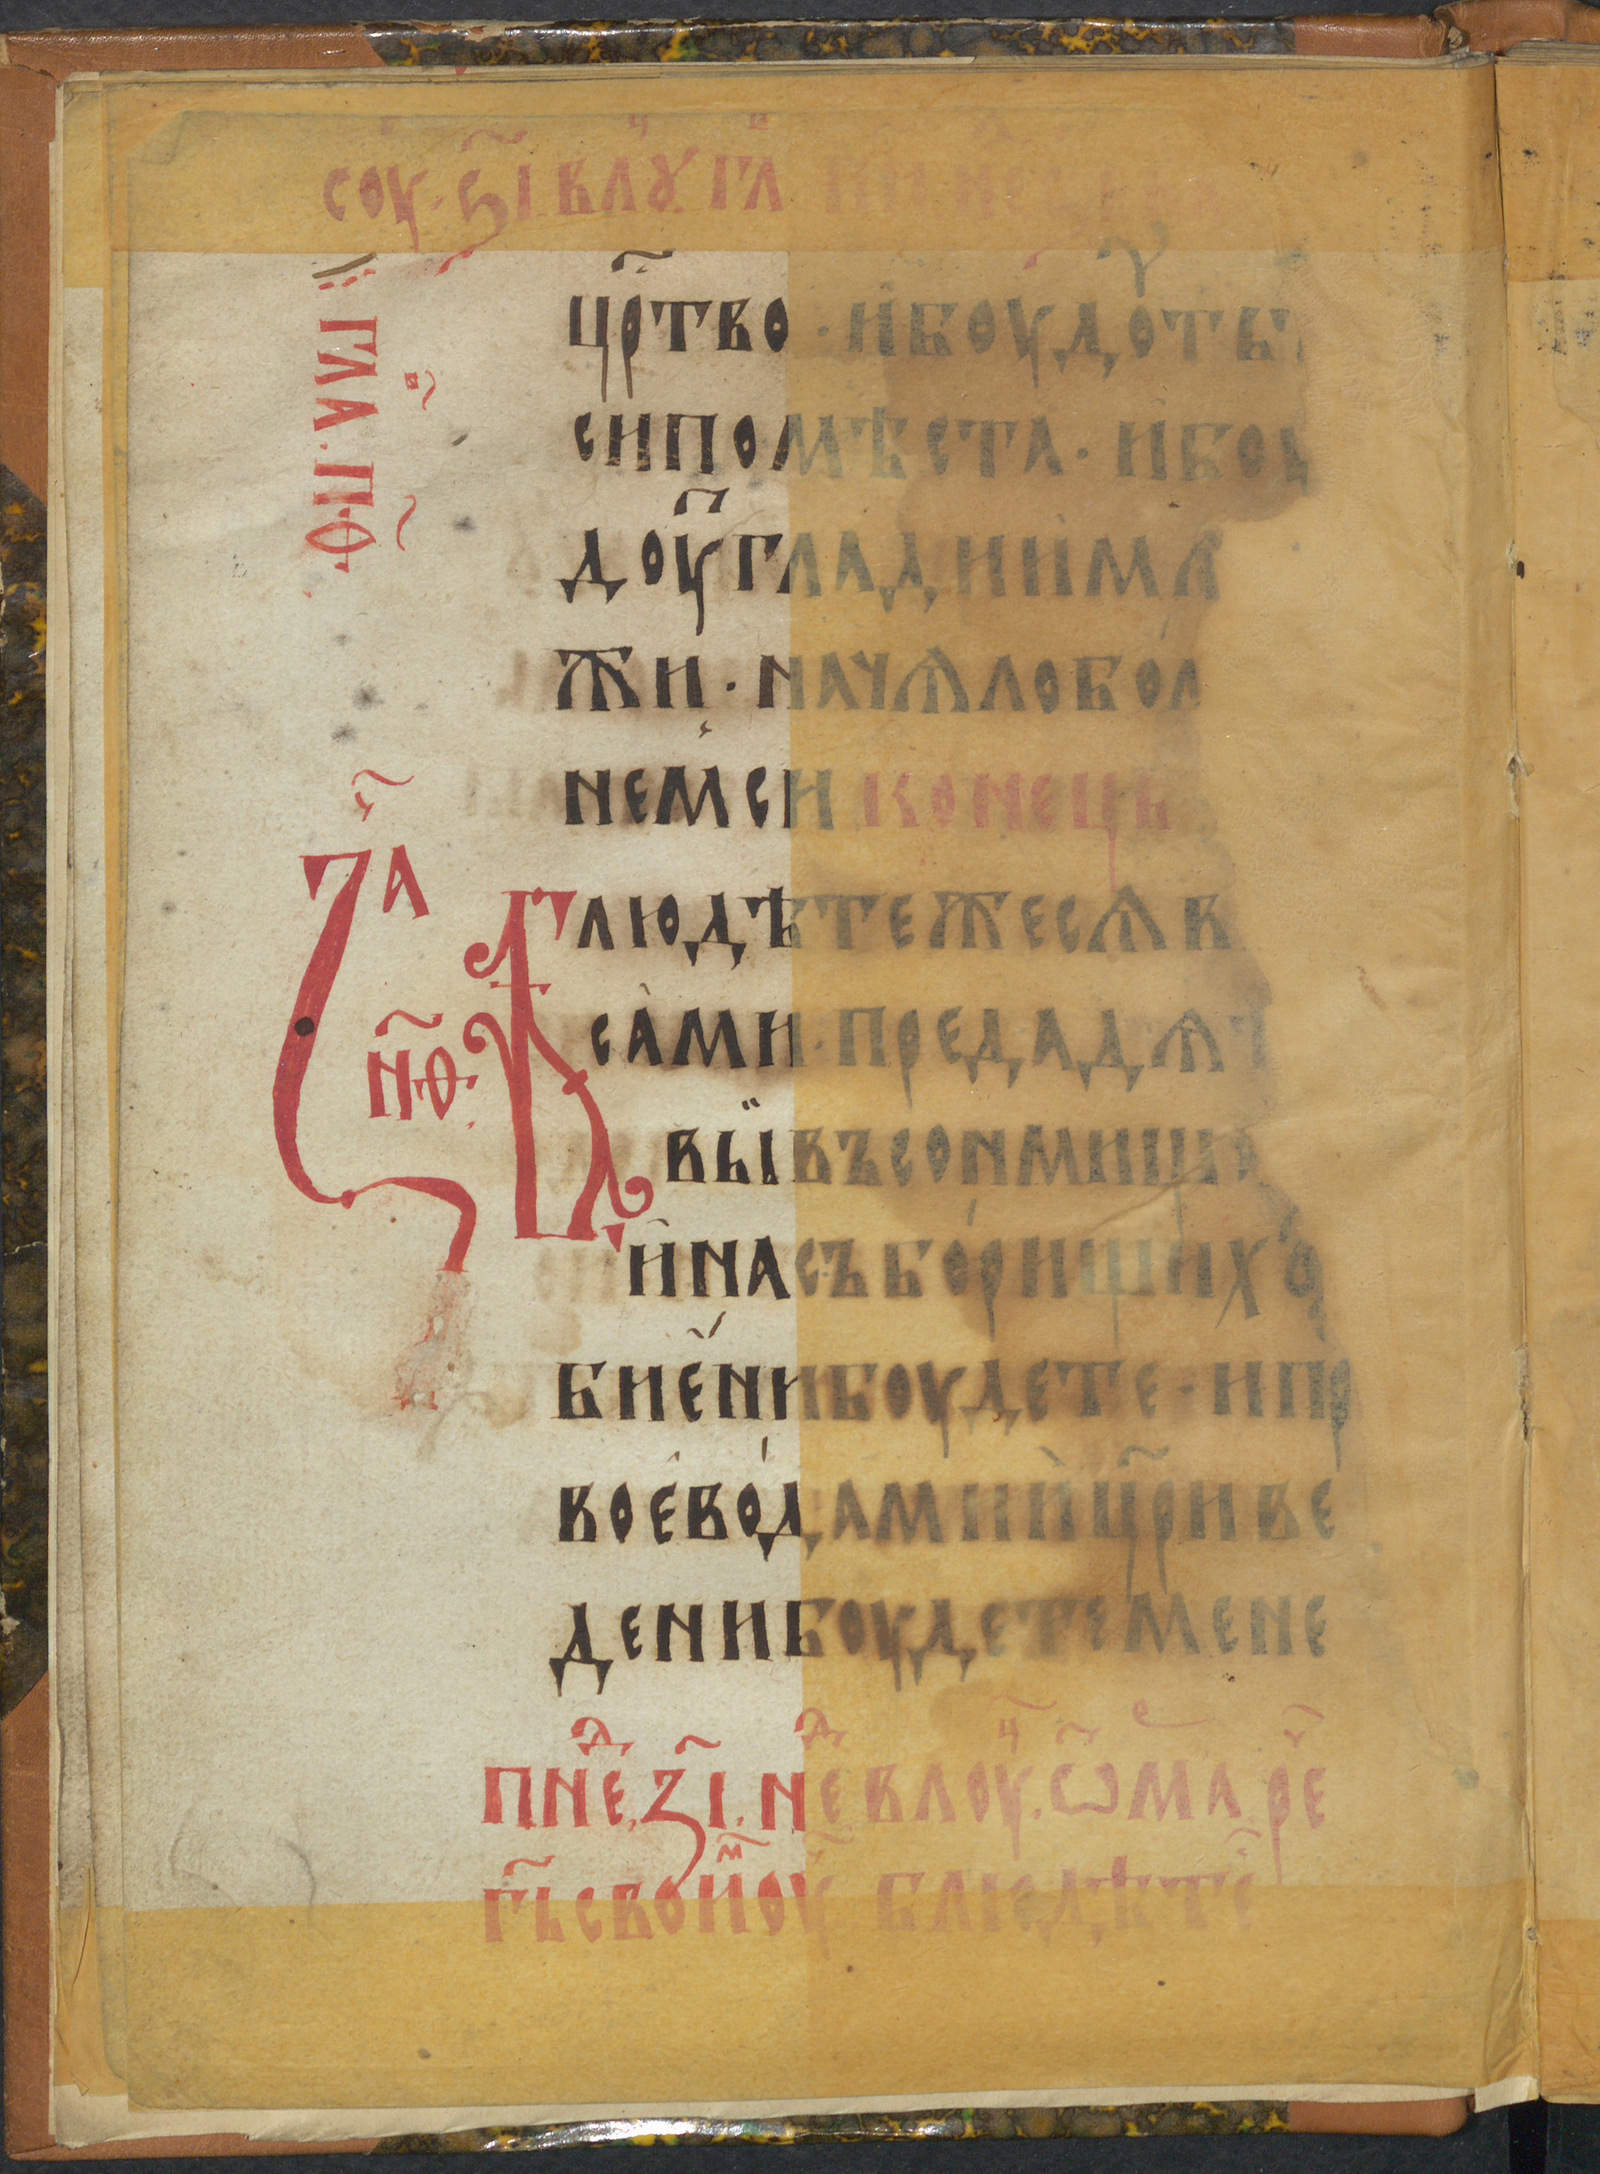 соу҃ · ѕ҃і в лꙋ гл
гла · п҃ѳ
цр҃тво · и боудоть
си по мѣста · и боу
доу҃ глади и мѧ
тжи · начѧло бол
немси конець
за҃
п҃ѳ
Блюдѣтежесѧ в
сами · предадѧт
вы въ сонмищи
и на съборищихъ
биени боудете · и пр
воеводами и цр҃и ве
дени боудете мене
пнⷣе з҃і · неⷣ в лоу · ѿ ма рⷱе
г҃ь своимъ оуⷱ блюдѣте